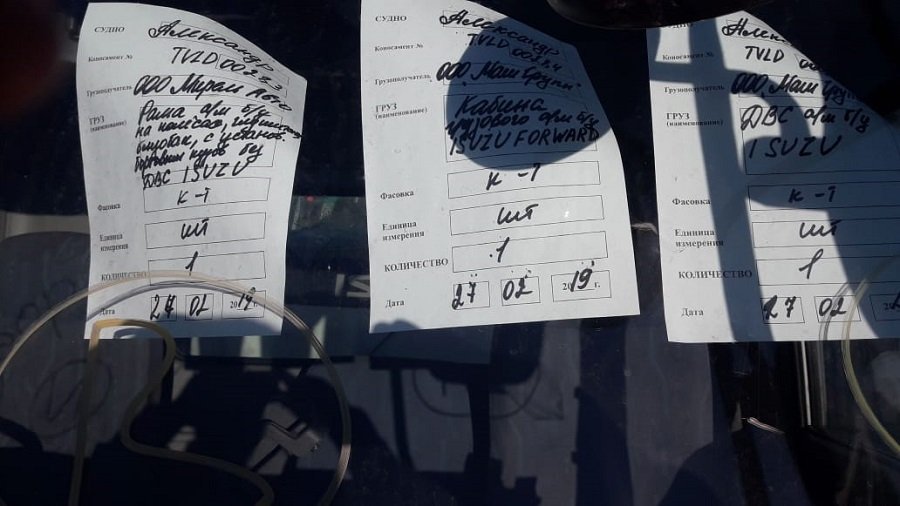 СУДНО Александр
Коносамент № TVLD 00283
Грузополучатель ООО Мирай Авто
ГРУЗ (наименование) Рама а/м б/у
на колёсах
с установ.
бортовым кузов без
ДВС ISUZU
Фасовка к-т
Единица измерения шт
КОЛИЧЕСТВО 1
Дата 27 02 2019
СУДНО Александр
Коносамент № TVLD 00284
Грузополучатель ООО Маш Групп
ГРУЗ (наименование) Кабина
грузового а/м б/у
ISUZU FORWARD
Фасовка к-т
Единица измерения шт
КОЛИЧЕСТВО 1
Дата 27 02 2019 г.
СУДНО Александр
Коносамент № TVLD
Грузополучатель ООО Маш Групп
ГРУЗ (наименование) ДВС а/м б/у
ISUZU
Фасовка к-т
Единица измерения шт
КОЛИЧЕСТВО 1
Дата 27 02